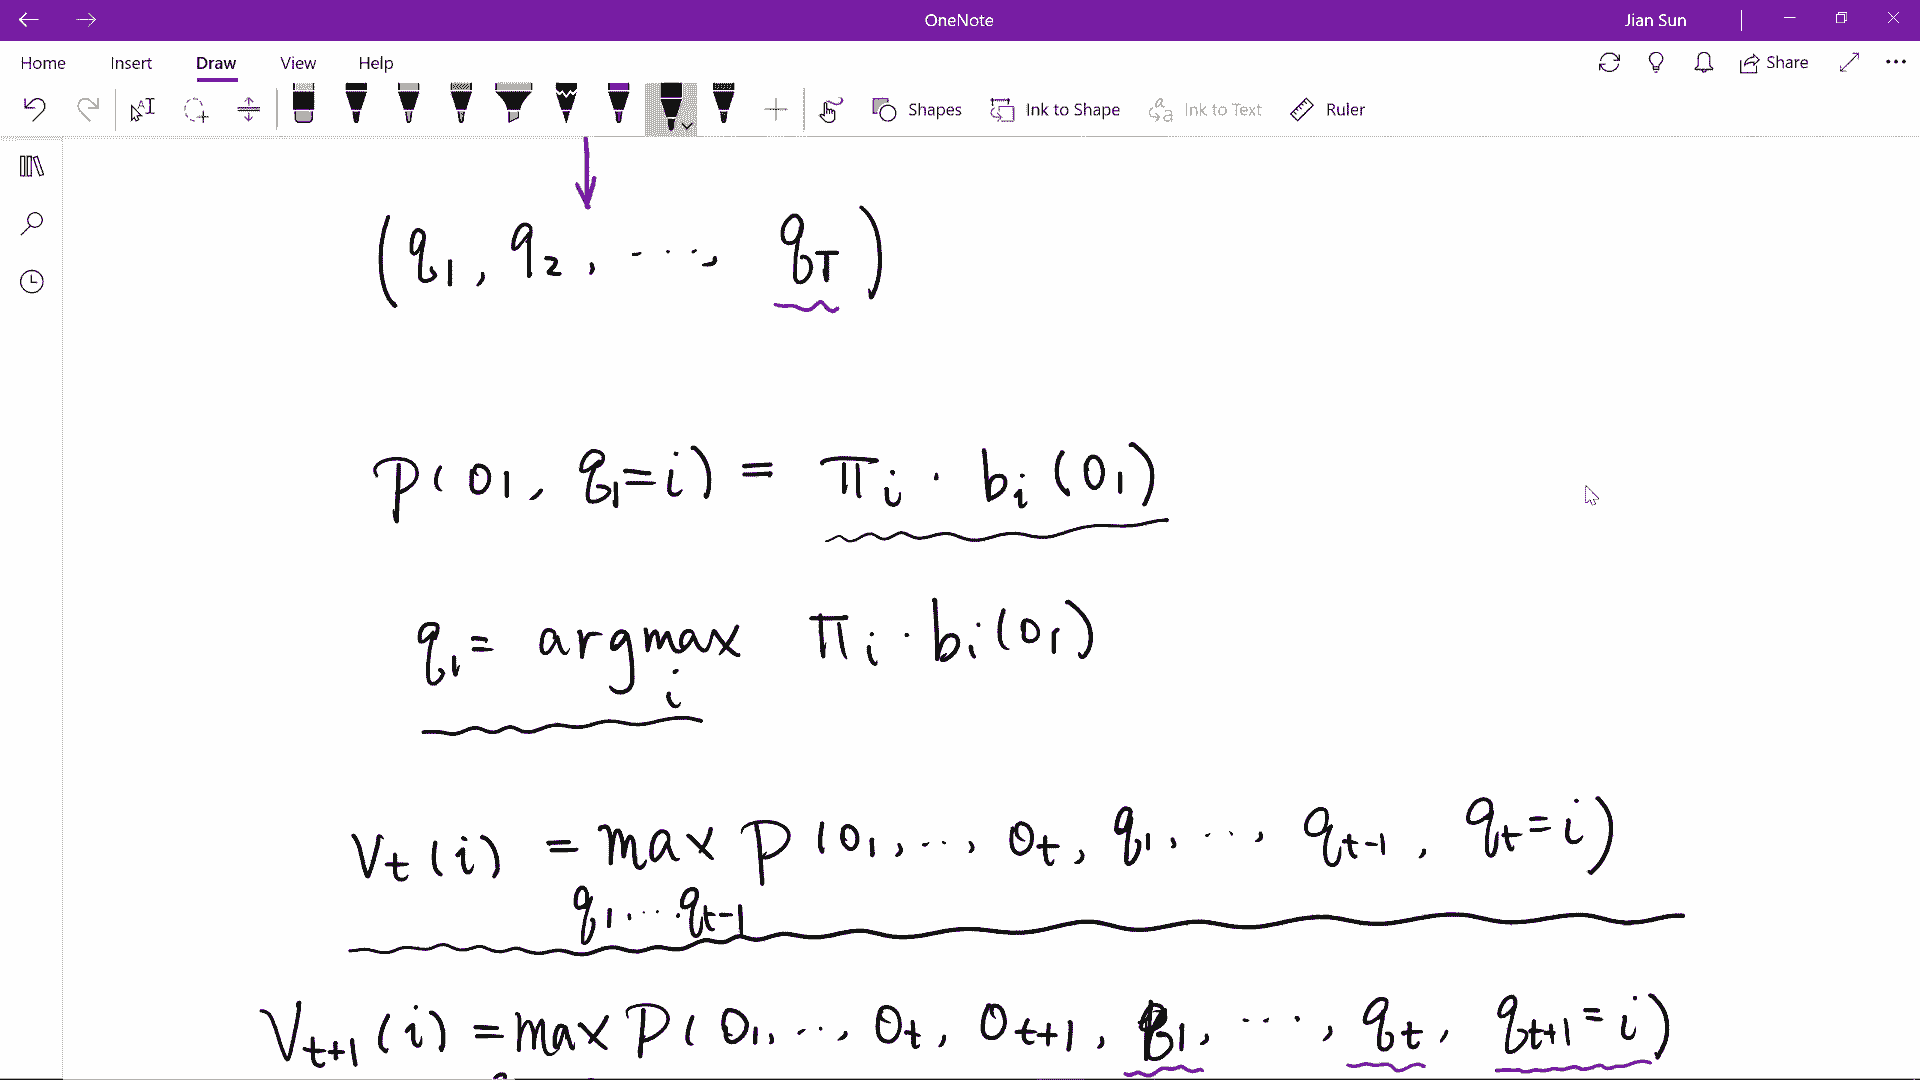 OneNote
Jian Sun
Home Insert Draw View Help
Share
Shapes Ink to Shape Ink to Text Ruler
(q₁, q₂, ..., q_T)
P(O₁, q₁=i) = π_i · b_i(O₁)
q₁ = argmax π_i · b_i(O₁)
i
V_t(i) = max P(O₁, .., O_t, q₁, ..., q_{t-1}, q_t=i)
q₁...q_{t-1}
V_{t+1}(i) = max P(O₁, .., O_t, O_{t+1}, q₁, ..., q_t, q_{t+1}=i)